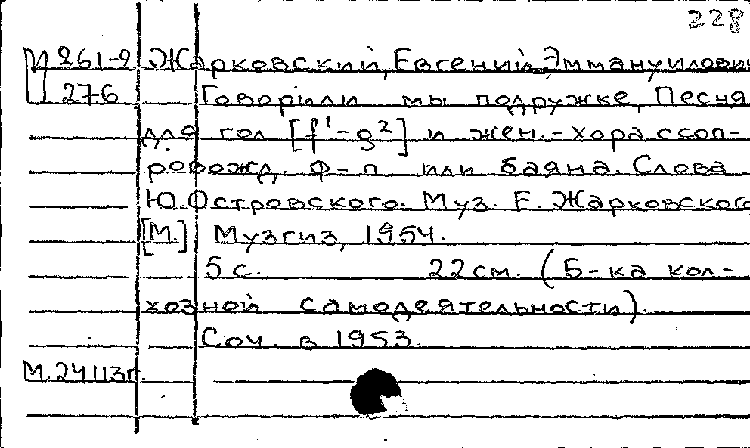 228
М 261-2 Жарковский, Евгений Эммануилович
276 Говорили мы подружке. Песня
для гол [f'-g²] и жен.-хора с соп-
ровожд. ф-п или баяна. Слова
Ю. Островского. Муз. Е. Жарковского
[М.] Музгиз, 1954.
5 с. 22 см. (Б-ка кол-
хозной самодеятельности).
Соч. в 1953.
М.24113г.